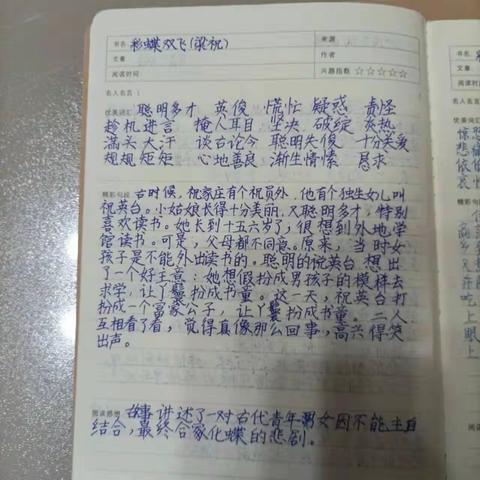 书名 彩蝶双飞(梁祝) 来源
文章 作者
阅读时间 兴趣指数 ☆☆☆☆☆
名人名言:
优美词汇 聪明多才 英俊 慌忙 疑惑 责怪
趁机进言 掩人耳目 坚决 破绽 炎热
满头大汗 谈古论今 聪明失俊 十分关爱
规规矩矩 心地善良 渐生情愫 恳求
精彩句段 古时候,祝家庄有个祝员外,他有个独生女儿叫
祝英台。小姑娘长得十分美丽,又聪明多才,特别
喜欢读书。她长到十五六岁了,很想到外地学
馆读书。可是,父母都不同意。原来,当时女
孩子是不能外出读书的。聪明的祝英台想出
了一个好主意:她想假扮成男孩子的模样去
求学,让丫鬟扮成书童。这一天,祝英台打
扮成一个富家公子,让丫鬟扮成书童。二人
互相看了看,觉得真像那么回事,高兴得笑
出声。
阅读感想 故事讲述了一对古代青年男女因不能主自
结合,最终合冢化蝶的悲剧。
书名
文章
阅读
名人名言
优美词汇
精彩句段
阅